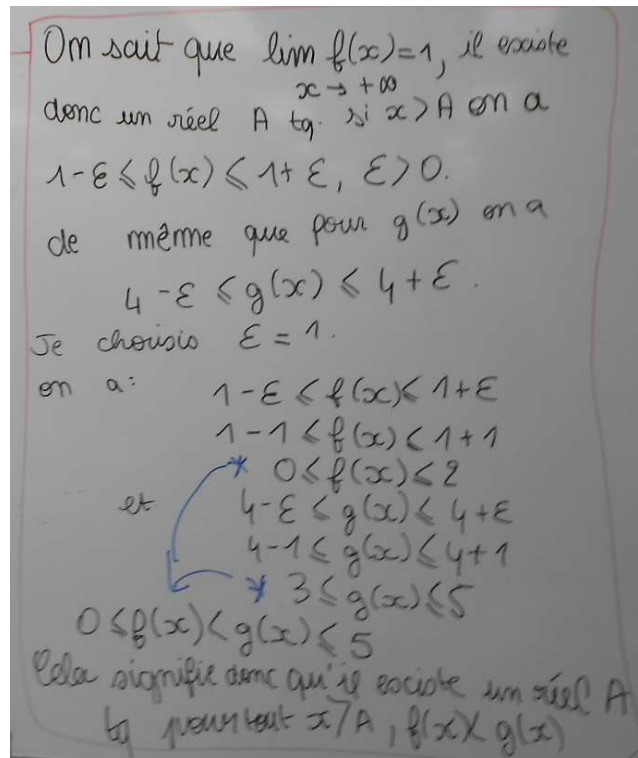 On sait que lim f(x)=1, il existe
x → +∞
donc un réel A tq. si x>A on a
1-ε ⩽ f(x) ⩽ 1+ε, ε>0.
de même que pour g(x) on a
4-ε ⩽ g(x) ⩽ 4+ε.
Je choisis ε = 1.
on a: 1-ε ⩽ f(x) ⩽ 1+ε
1-1 ⩽ f(x) ⩽ 1+1
* 0 ⩽ f(x) ⩽ 2
et 4-ε ⩽ g(x) ⩽ 4+ε
4-1 ⩽ g(x) ⩽ 4+1
* 3 ⩽ g(x) ⩽ 5
0 ⩽ f(x) < g(x) ⩽ 5
Cela signifie donc qu'il existe un réel A
tq pour tout x>A, f(x)<g(x)